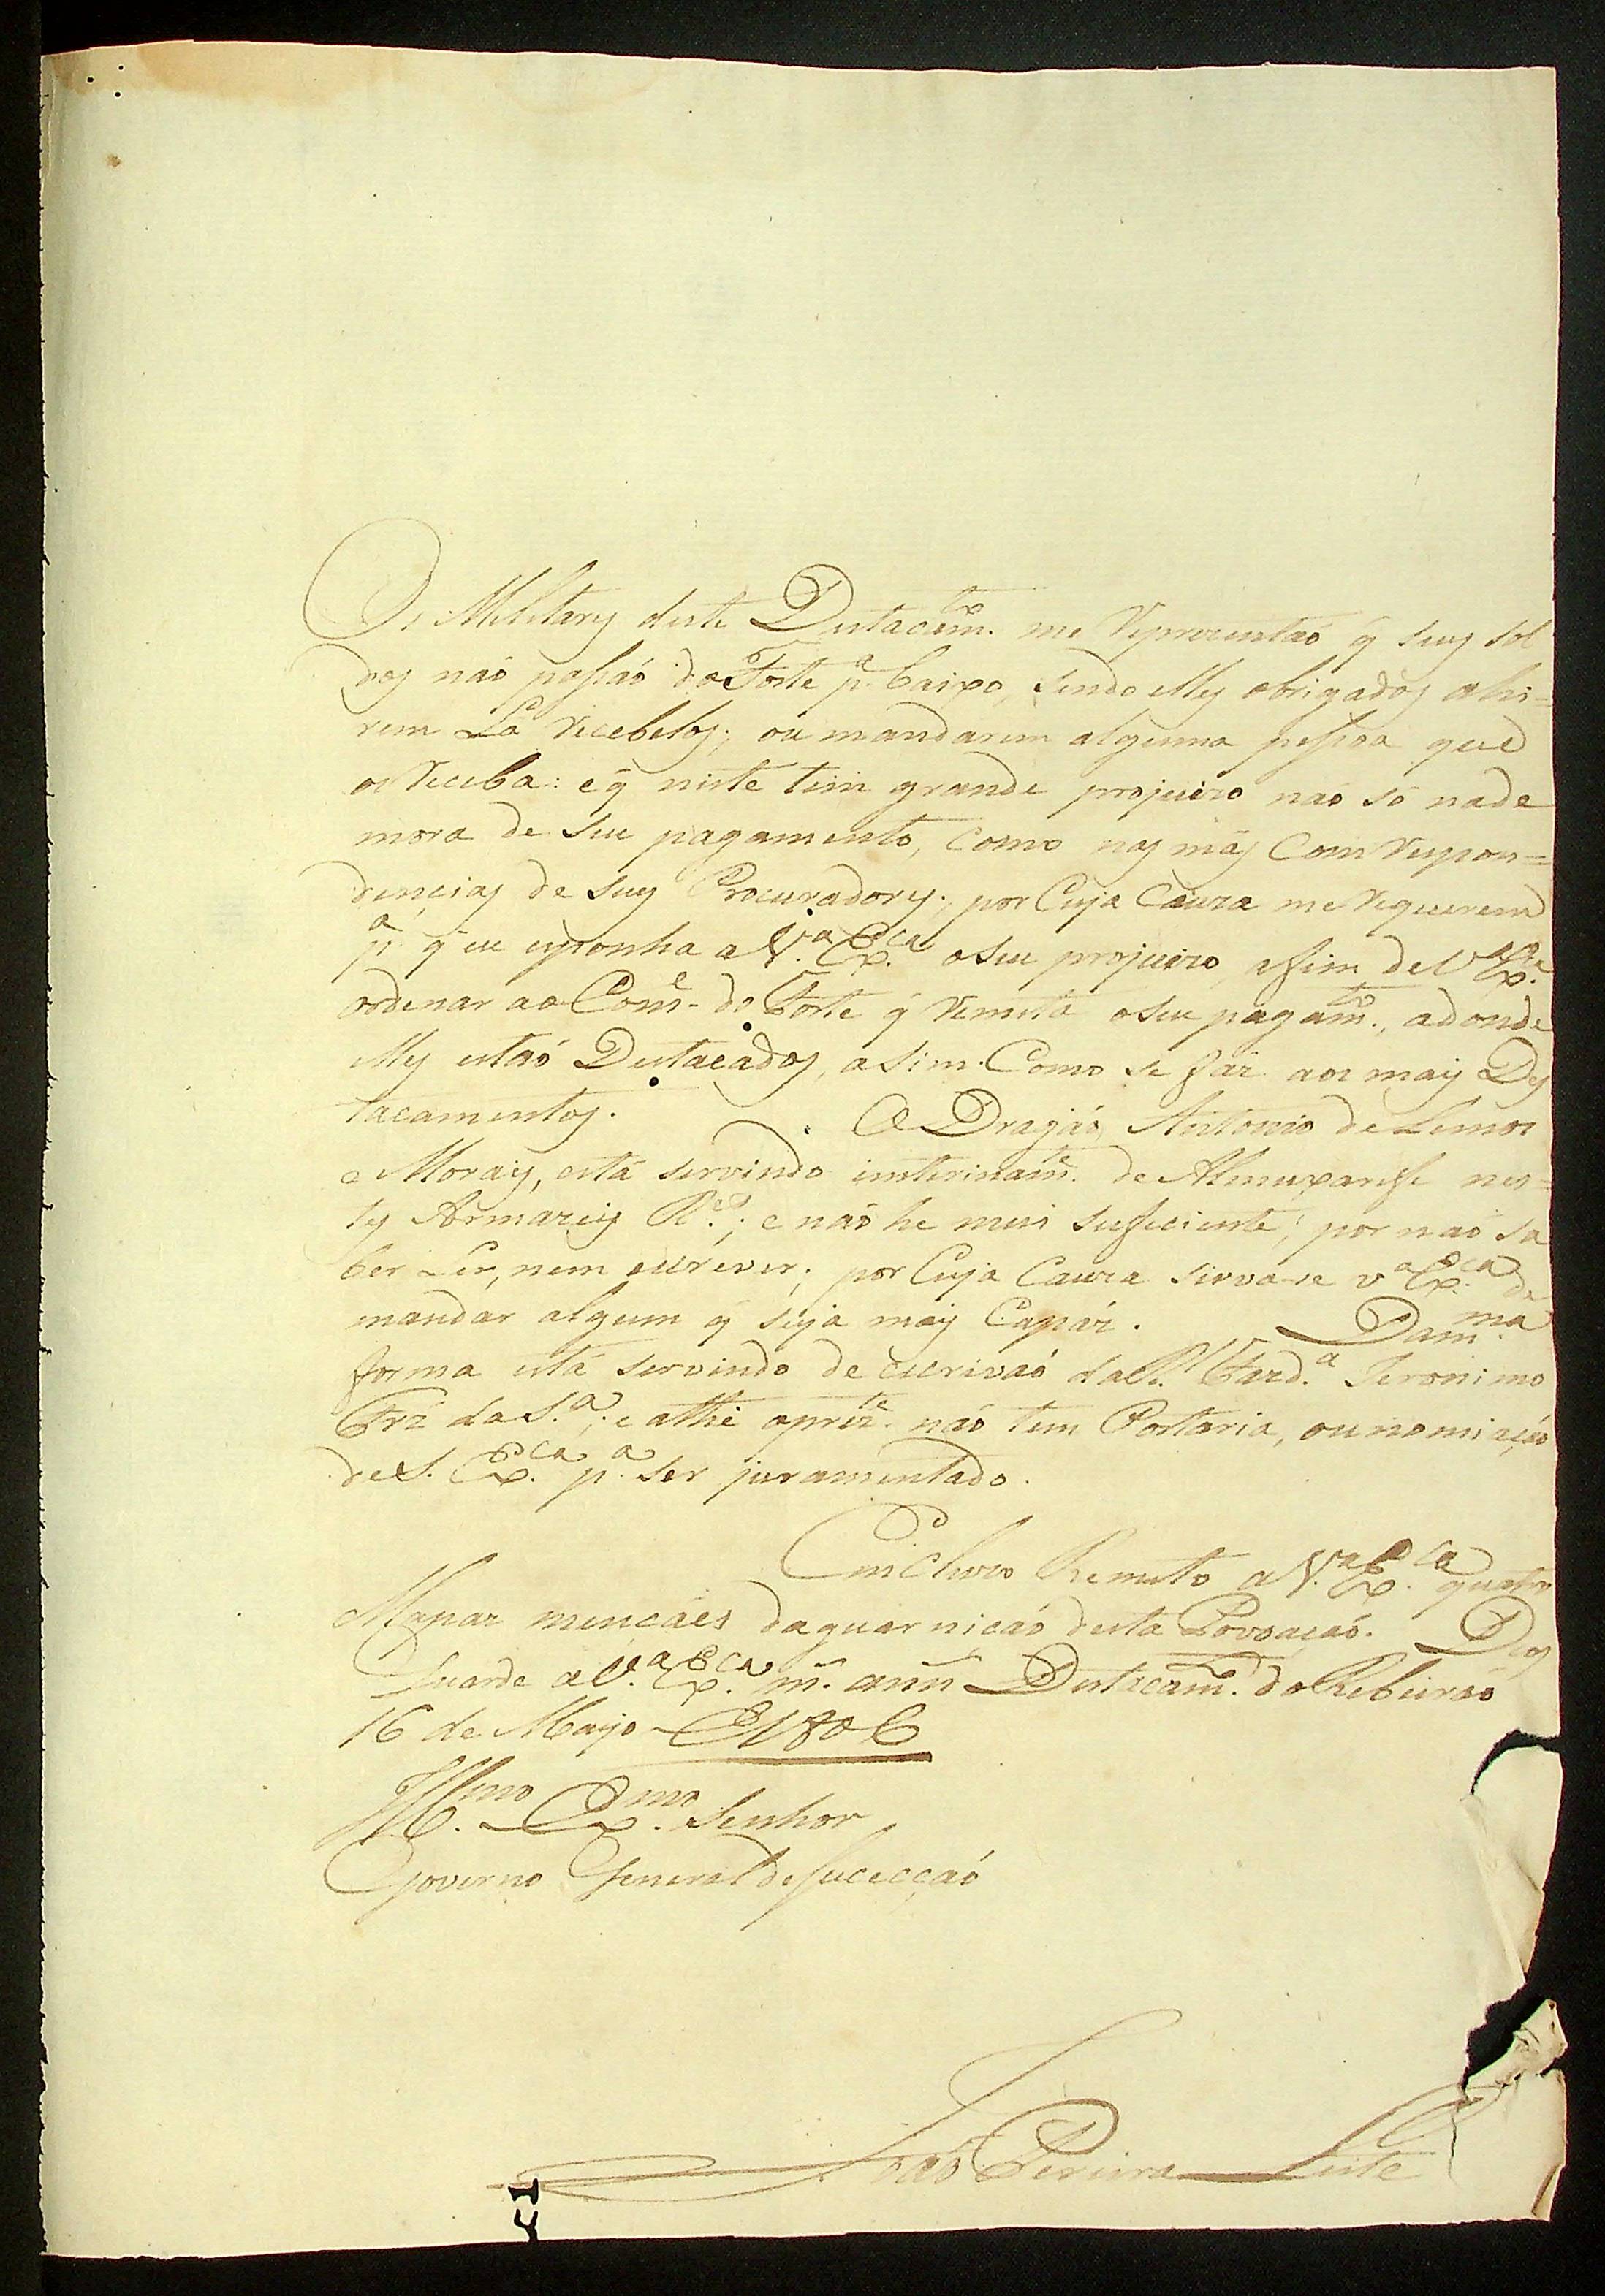 Os Militares deste Destacam.to me Reprezentaõ q̃ seus sol
dos naõ passaõ do Forte p.a baixo, sendo elles obrigados a hi=
rem Lá Recebelos; ou mandarem alguma pessoa que
os Receba: e q̃ niste tem grande projuizo naõ só nade
mora de seu pagamento, como nas más Com Respon=
dencias de seus Procuradores; por Cuja Cauza me Requerem
p.a q̃ eu esponha a V.a Ex.ca o seu projuizo, afim de V.a Ex.ca
ordenar ao Com.e do Forte q̃ Remeta o seu pagam.to, adonde
elles estaõ Destacados, asim Como se fáz aos mais Des
tacamentos. O Dragaõ Antonio de Lemos
e Morais, está servindo interinam.te de Almuxarife nes=
tes Armazeis R.es; e naõ he mui suficiente, por naõ sa
ber Ler, nem escrever; por Cuja Cauza sirva-se V.a Ex.ca de
mandar algum q̃ seja mais Capáz. Da m.ma
forma está servindo de escrivaõ da R.l Fazd.a Jeronimo
Frz da S.a; e athé oprez.te naõ tem Portaria, ou nomiaçaõ
de S. Ex.ca p.a ser juramentado.
Emcluzo Remeto a V.a Ex.ca quatro
Mapas mençáes da guarniçaõ desta Povoaçaõ. Ds
Guarde a V.a Ex.ca m.s ann.s Destacam.to do Ribeiraõ
16 de Mayo
Ill.mo Ex.mo Senhor
Governo General de Sucecçaõ
Joaõ Pereira Leite